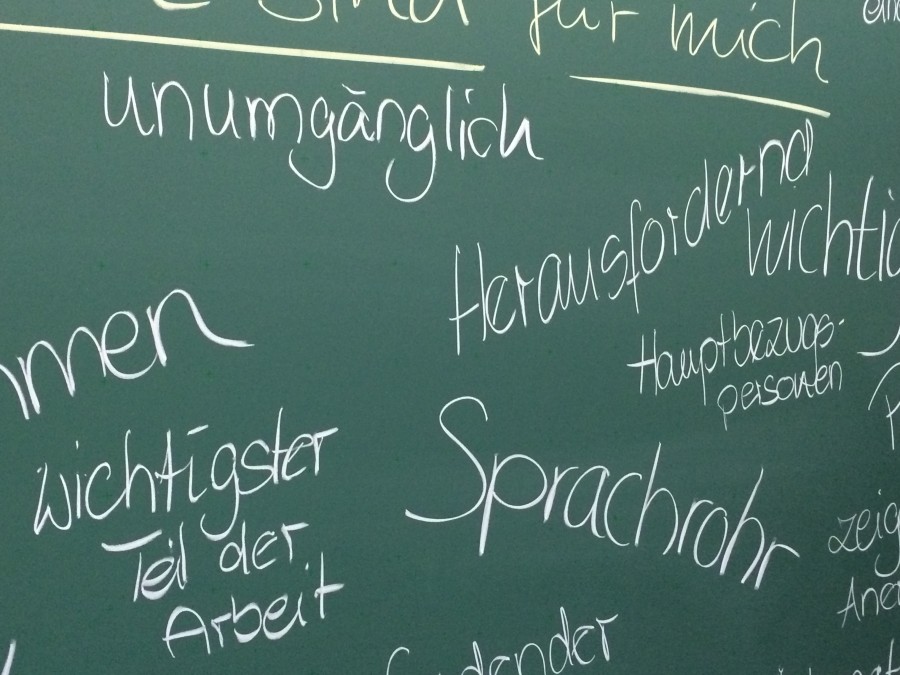 sind für mich
unumgänglich
Herausfordernd
wichtig
Hauptbezugs-
personen
wichtigster
Teil der
Arbeit
Sprachrohr